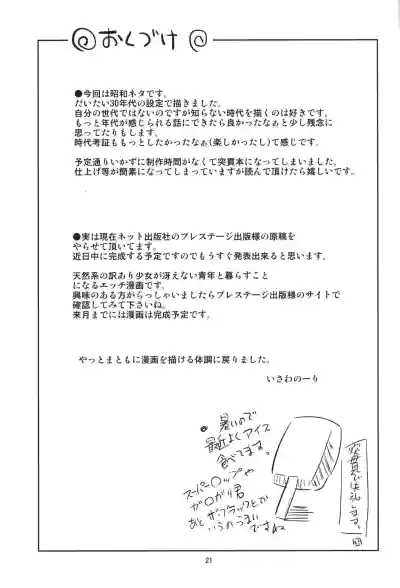 おくづけ
●今回は昭和ネタです。
だいたい30年代の設定で描きました。
自分の世代ではないのですが知らない時代を描くのは好きです。
もっと年代が感じられる話にできたら良かったなぁと少し残念に
思ってたりもします。
時代考証ももっとしたかったなぁ(楽しかったし)て感じです。
予定通りいかずに制作時間がなくて突貫本になってしまいました。
仕上げ等が簡素になってしまっていますが読んで頂けたら嬉しいです。
●実は現在ネット出版社のプレステージ出版様の原稿を
やらせて頂いてます。
近日中に完成する予定ですのでもうすぐ発表出来ると思います。
天然系の訳あり少女が冴えない青年と暮らすこと
になるエッチ漫画です。
興味のある方からっしゃいましたらプレステージ出版様のサイトで
確認してみて下さいね。
来月までには漫画は完成予定です。
やっとまともに漫画を描ける体調に戻りました。
いさわのーり
暑いので
最近よくアイス
食べてます。
スーパー〇ップや
ガ〇ガリ君
あとザ・ブラックとか
いうのうまい
ですね
失礼します。
21